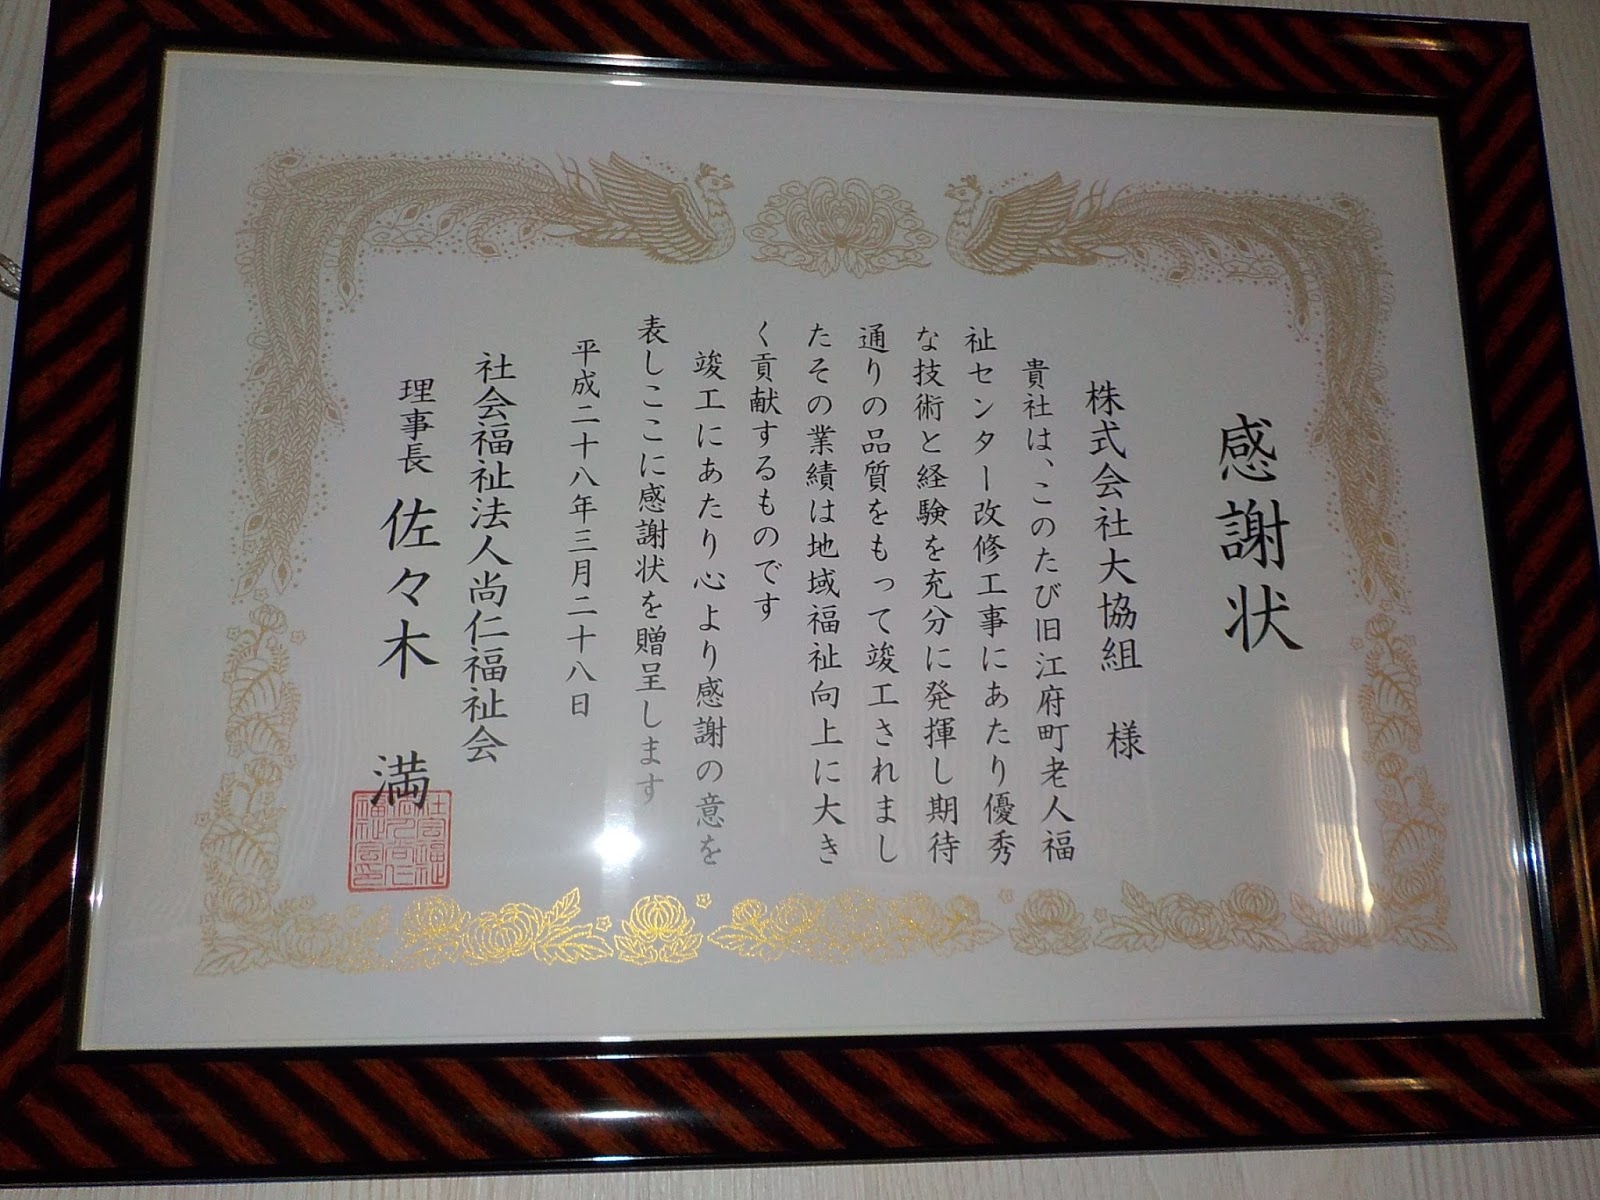 感謝状
株式会社大協組 様
貴社は、このたび旧江府町老人福
祉センター改修工事にあたり優秀
な技術と経験を充分に発揮し期待
通りの品質をもって竣工されまし
たその業績は地域福祉向上に大き
く貢献するものです
竣工にあたり心より感謝の意を
表しここに感謝状を贈呈します
平成二十八年三月二十八日
社会福祉法人尚仁福祉会
理事長 佐々木 満